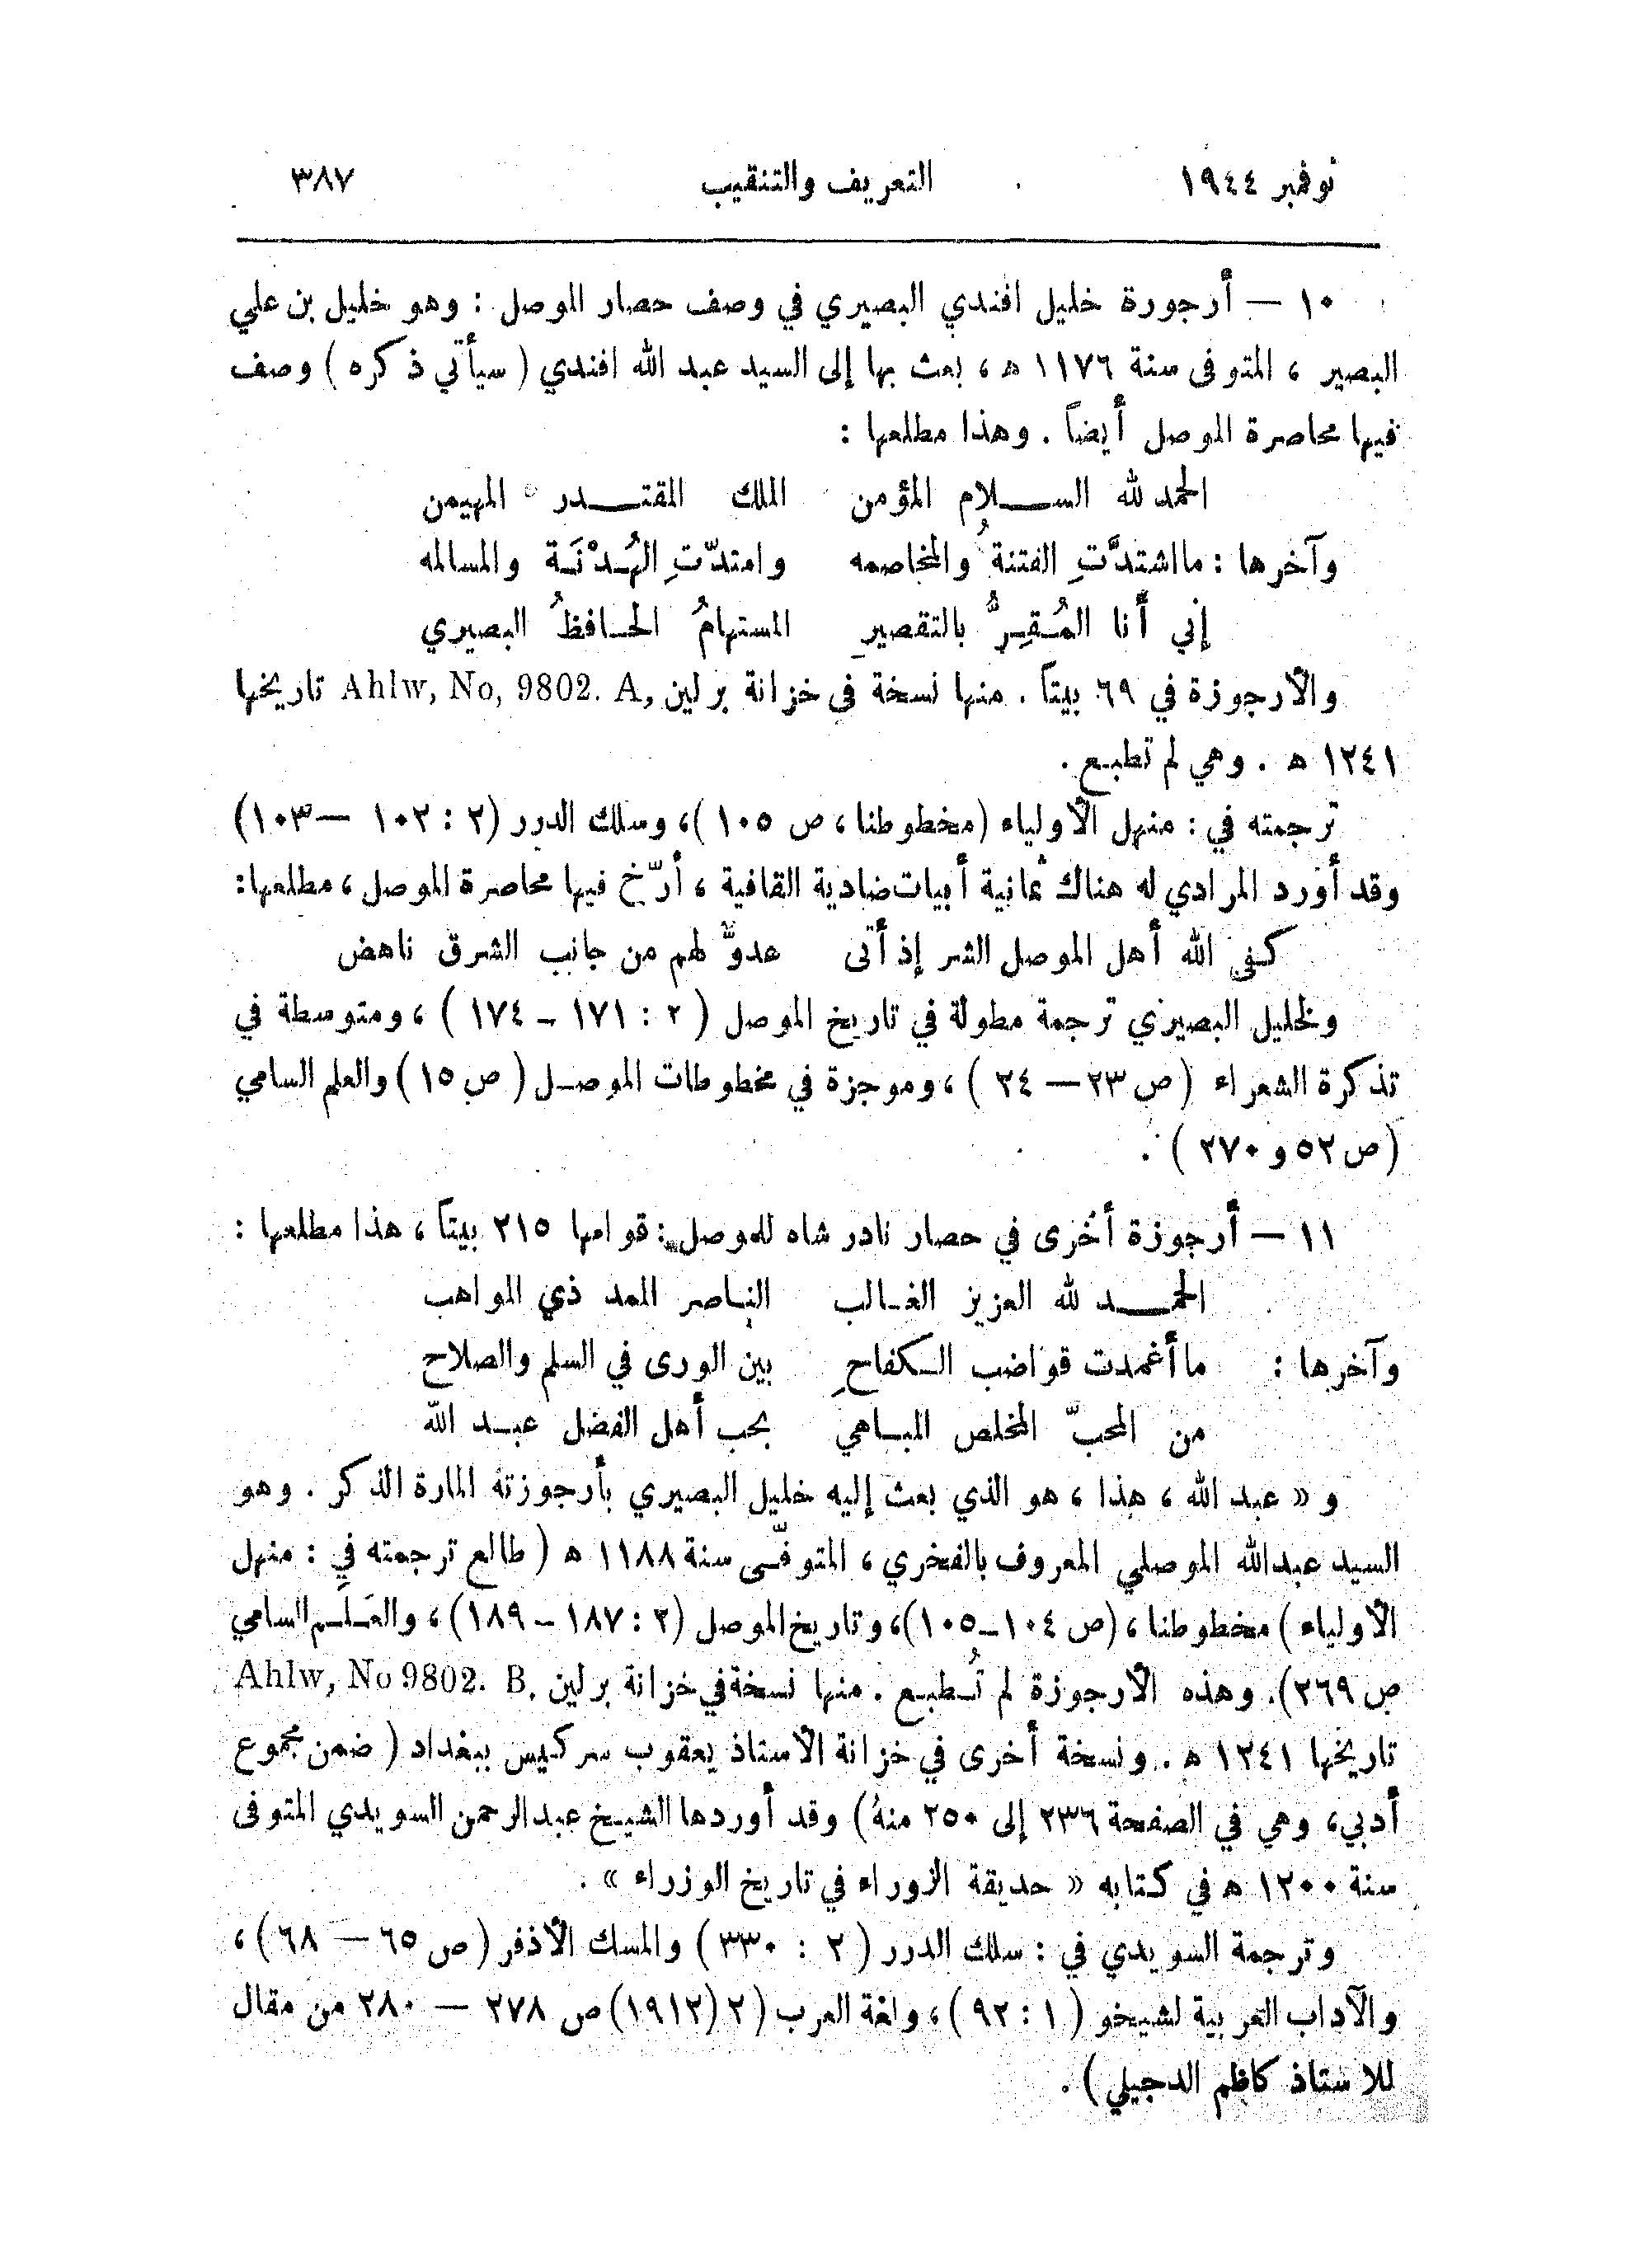 نوفمبر ١٩٤٤ التعريف والتنقيب ٣٨٧
١٠ — أرجورة خليل افندي البصيري في وصف حصار الموصل : وهو خليل بن علي
البصير ، المتوفى سنة ١١٧٦ ه ، بعث بها إلى السيد عبد الله افندي ( سيأتي ذكره ) وصف
فيها محاصرة الموصل أيضاً . وهذا مطلعها :
الحمد لله الســلام المؤمن الملك المقتــدر المهيمن
وآخرها : ما اشتدَّتِ الفتنةُ والمخاصمه وامتدّتِ الهُـدْنَـة والمسالمه
إني أنا المُـقـِـرُّ بالتقصير المستهامُ الحـافظُ البصيري
والأرجوزة في ٦٩ بيتاً . منها نسخة في خزانة برلين Ahlw, No, 9802. A, تاريخها
١٢٤١ ه . وهي لم تطبـع .
ترجمته في : منهل الأولياء (مخطوطنا ، ص ١٠٥ )، وسلك الدرر (٢ : ١٠٢ — ١٠٣)
وقد أورد المرادي له هناك ثمانية أبيات ضادية القافية ، أرّخ فيها محاصرة الموصل ، مطلعها:
كـفى الله أهل الموصل الشر إذ أتى عدوٌّ لهم من جانب الشرق ناهض
ولخليل البصيري ترجمة مطولة في تاريخ الموصل ( ٢ : ١٧١ - ١٧٤ ) ، ومتوسطة في
تذكرة الشعراء (ص ٢٣ — ٢٤ ) ، وموجزة في مخطوطات الموصـل ( ص ١٥ ) والعلم السامي
(ص ٥٢ و ٢٧٠ ) .
١١ — أرجوزة أخرى في حصار نادر شاه للموصل : قوامها ٢١٥ بيتاً ، هذا مطلعها :
الحمــد لله العزيز الغـالب النـاصر المعد ذي المواهب
وآخرها : ما أغمدت قواضب الـكفاحِ بين الورى في السلم والصلاح
من المحبّ المخلص المبـاهي بحب أهل الفضل عبـد الله
و « عبد الله ، هذا ، هو الذي بعث إليه خليل البصيري بأرجوزته المارة الذكر . وهو
السيد عبدالله الموصلي المعروف بالفخري ، المتوفّـى سنة ١١٨٨ ه ( طالع ترجمته في : منهل
الأولياء ) مخطوطنا ، (ص ١٠٤-١٠٥)، وتاريخ الموصل (٢ : ١٨٧ - ١٨٩) ، والعَـلَـم السامي
ص ٢٦٩). وهذه الأرجوزة لم تُـطبـع . منها نسخة في خزانة برلين Ahlw, No 9802. B,
تاريخها ١٢٤١ ه . ونسخة أخرى في خزانة الأستاذ يعقوب سركيس ببغداد ( ضمن مجموع
أدبي ، وهي في الصفحة ٢٣٦ إلى ٢٥٠ منهُ) وقد أوردها الشيـخ عبد الرحمن السويدي المتوفى
سنة ١٢٠٠ ه في كتابه « حديقة الزوراء في تاريخ الوزراء » .
وترجمة السويدي في : سلك الدرر ( ٢ : ٣٣٠ ) والمسك الأذفر (ص ٦٥ — ٦٨ ) ،
والآداب العربية لشيخو ( ١ : ٩٢ ) ، ولغة العرب ( ٢ (١٩١٢) ص ٢٧٨ — ٢٨٠ من مقال
للاستاذ كاظم الدجيلي ) .